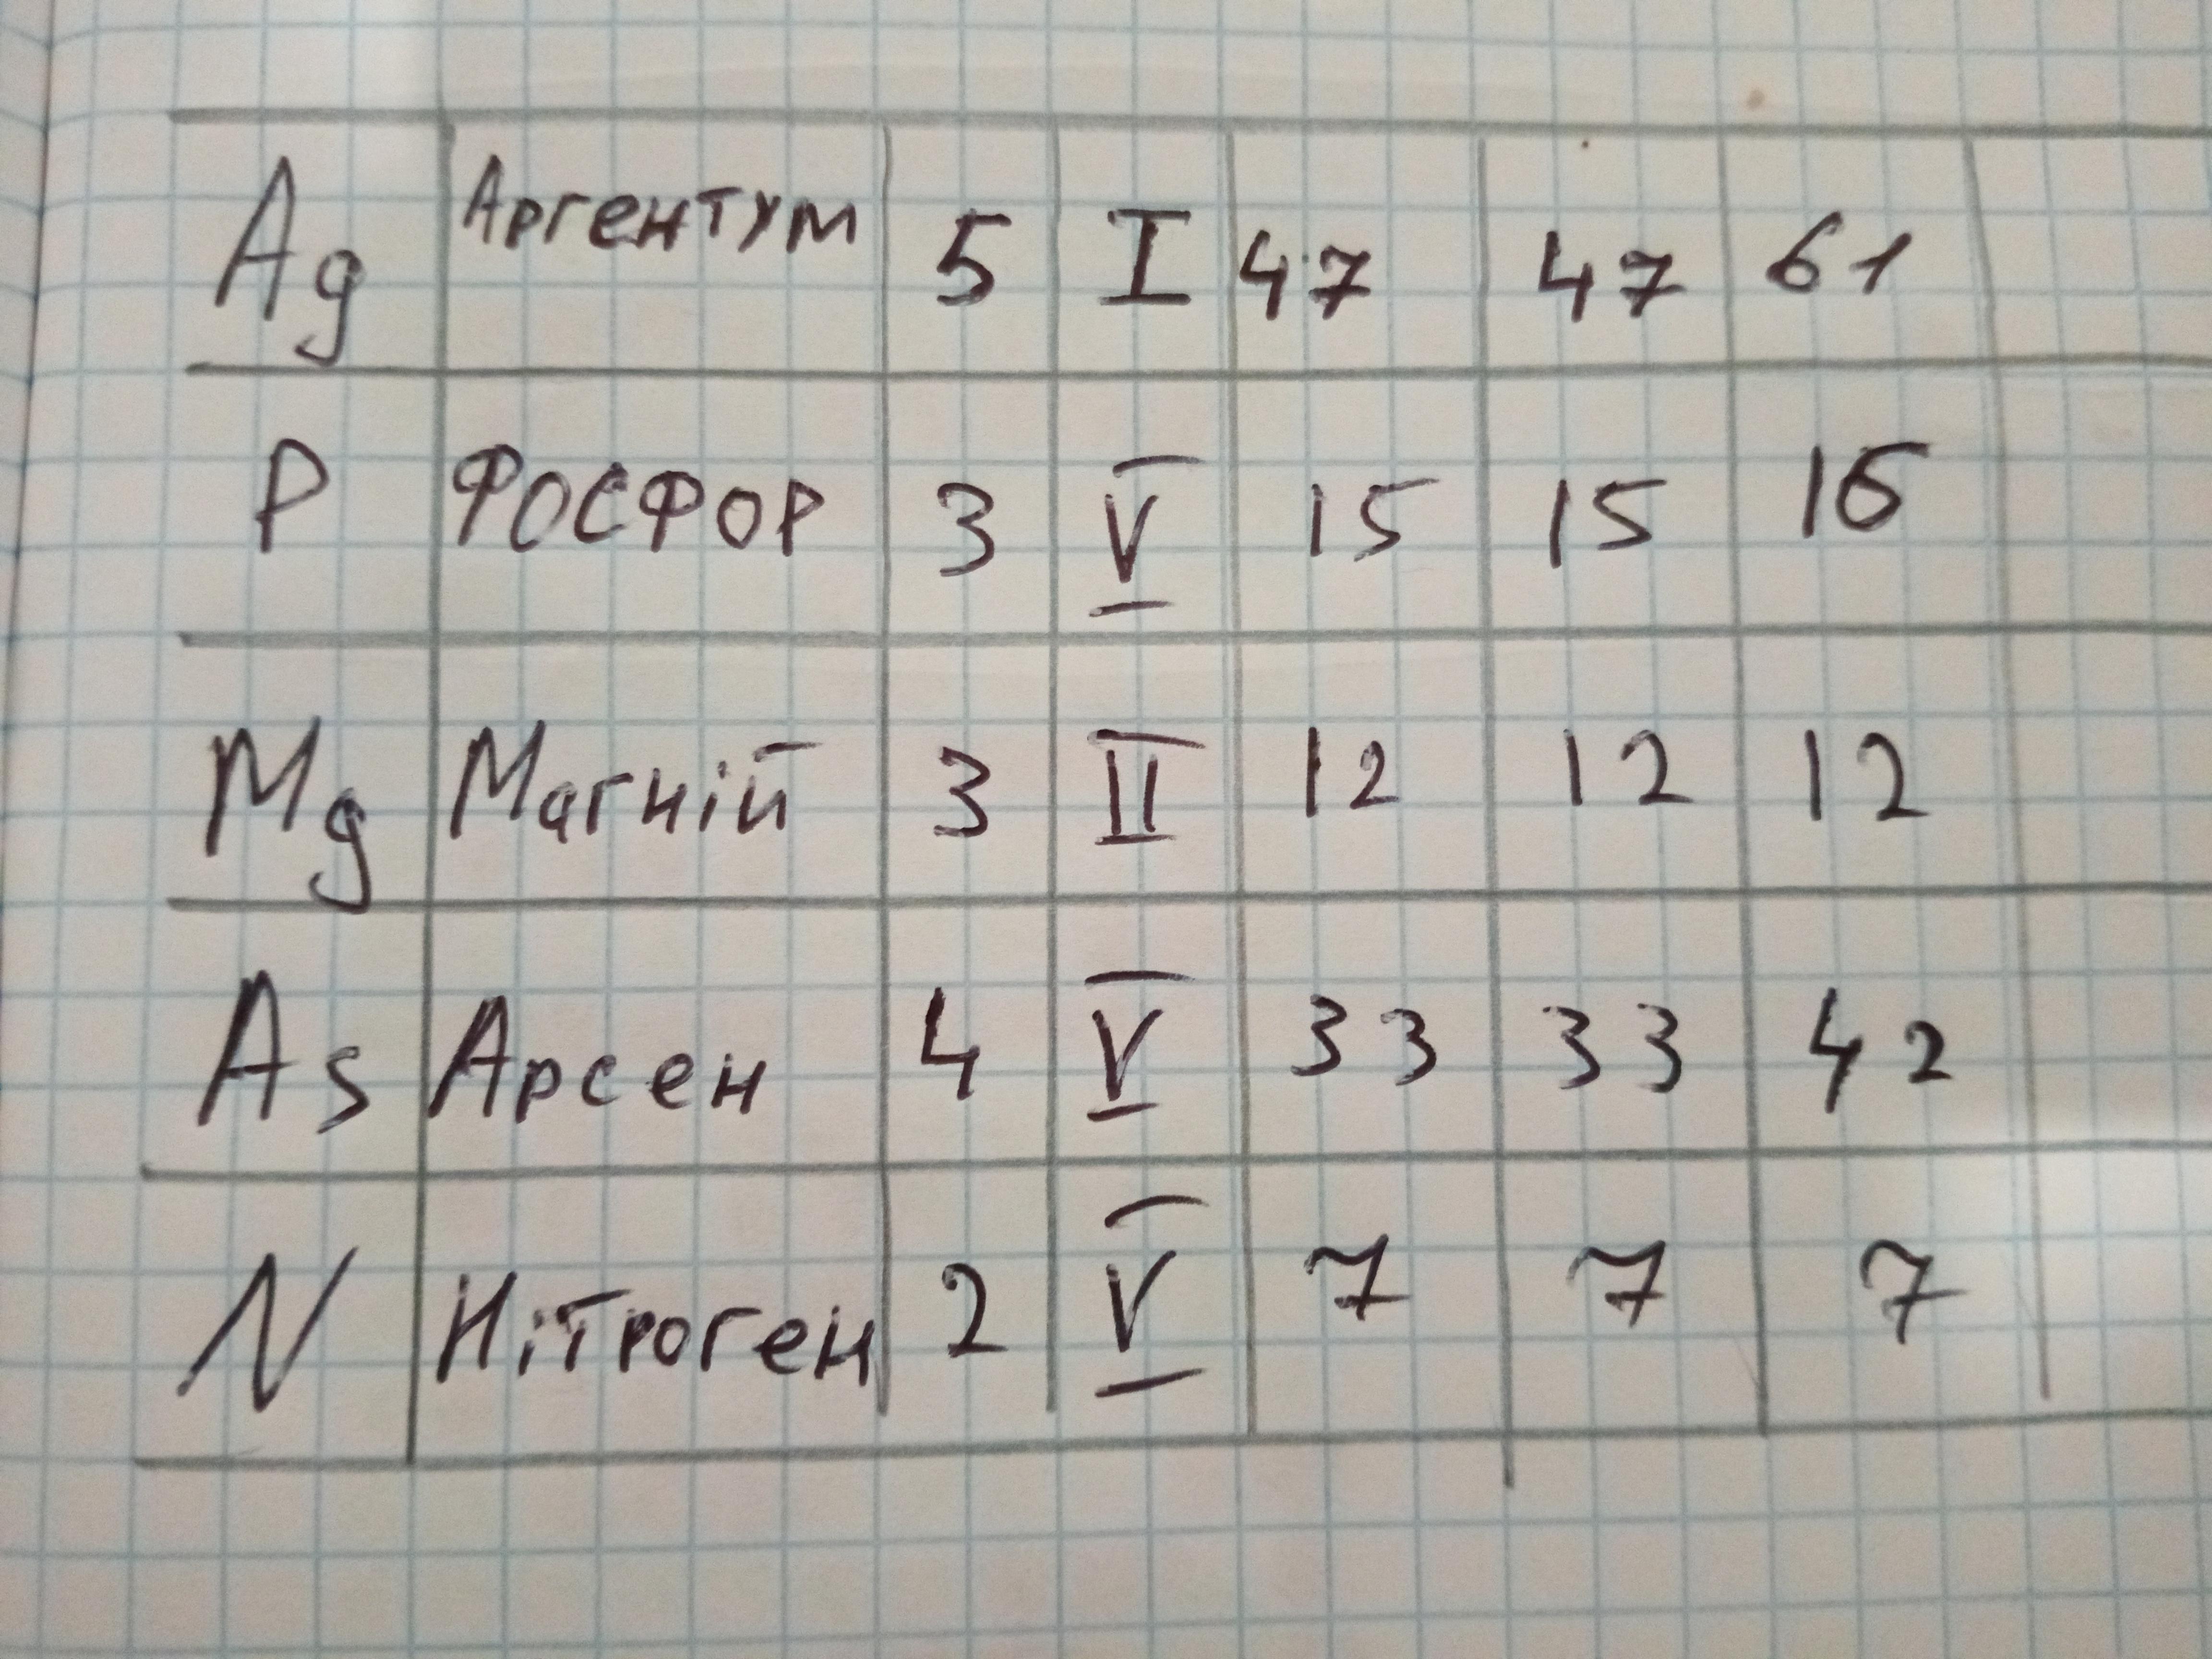 Ag Аргентум 5 I 47 47 61
P ФОСФОР 3 V 15 15 16
Mg Магній 3 II 12 12 12
As Арсен 4 V 33 33 42
N Нітроген 2 V 7 7 7